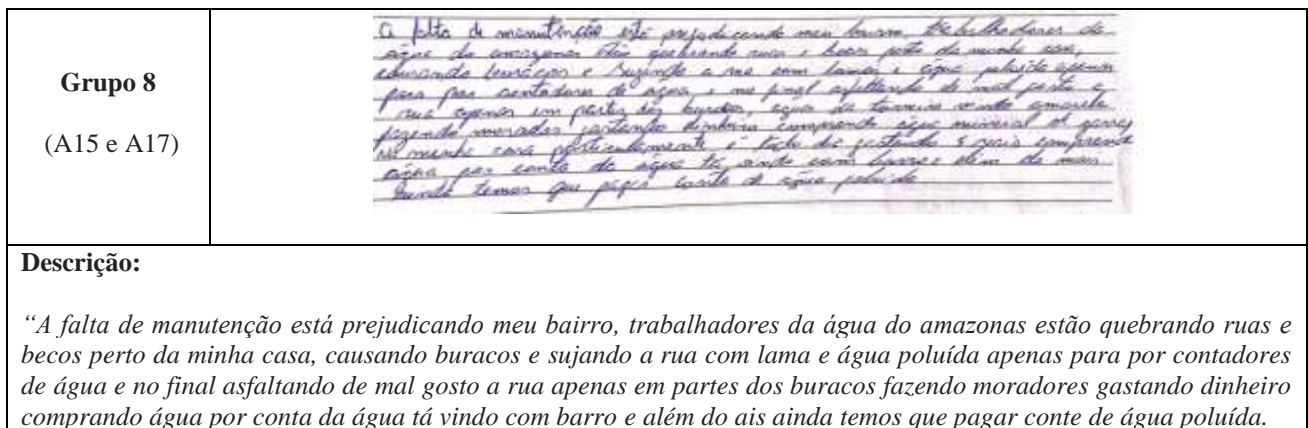 Grupo 8
(A15 e A17)
A falta de manutenção está prejudicando meu bairro, trabalhadores da
água do amazonas estão quebrando ruas e becos perto da minha casa,
causando buracos e sujando a rua com lama e água poluída apenas
para por contadores de água, e no final asfaltando de mal gosto a
rua apenas em partes dos buracos, água da torneira vindo amarela
fazendo moradores gastando dinheiro comprando água mineral
minha casa particularmente é todo dia gastando 5 reais comprando
água por conta da água tá vindo com barro e além do mais
ainda temos que pagar conta de água poluída
Descrição:
“A falta de manutenção está prejudicando meu bairro, trabalhadores da água do amazonas estão quebrando ruas e
becos perto da minha casa, causando buracos e sujando a rua com lama e água poluída apenas para por contadores
de água e no final asfaltando de mal gosto a rua apenas em partes dos buracos fazendo moradores gastando dinheiro
comprando água por conta da água tá vindo com barro e além do ais ainda temos que pagar conte de água poluída.